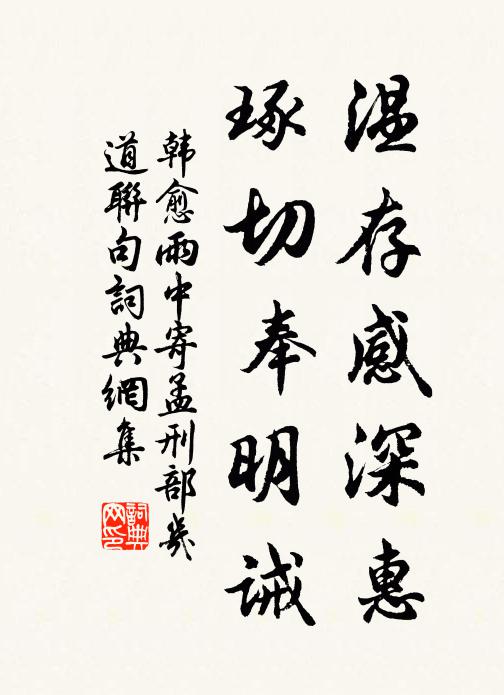 温存感深惠
琢切奉明誡
韩愈雨中寄孟刑部幾
道聯句詞典網集
詞典
网印